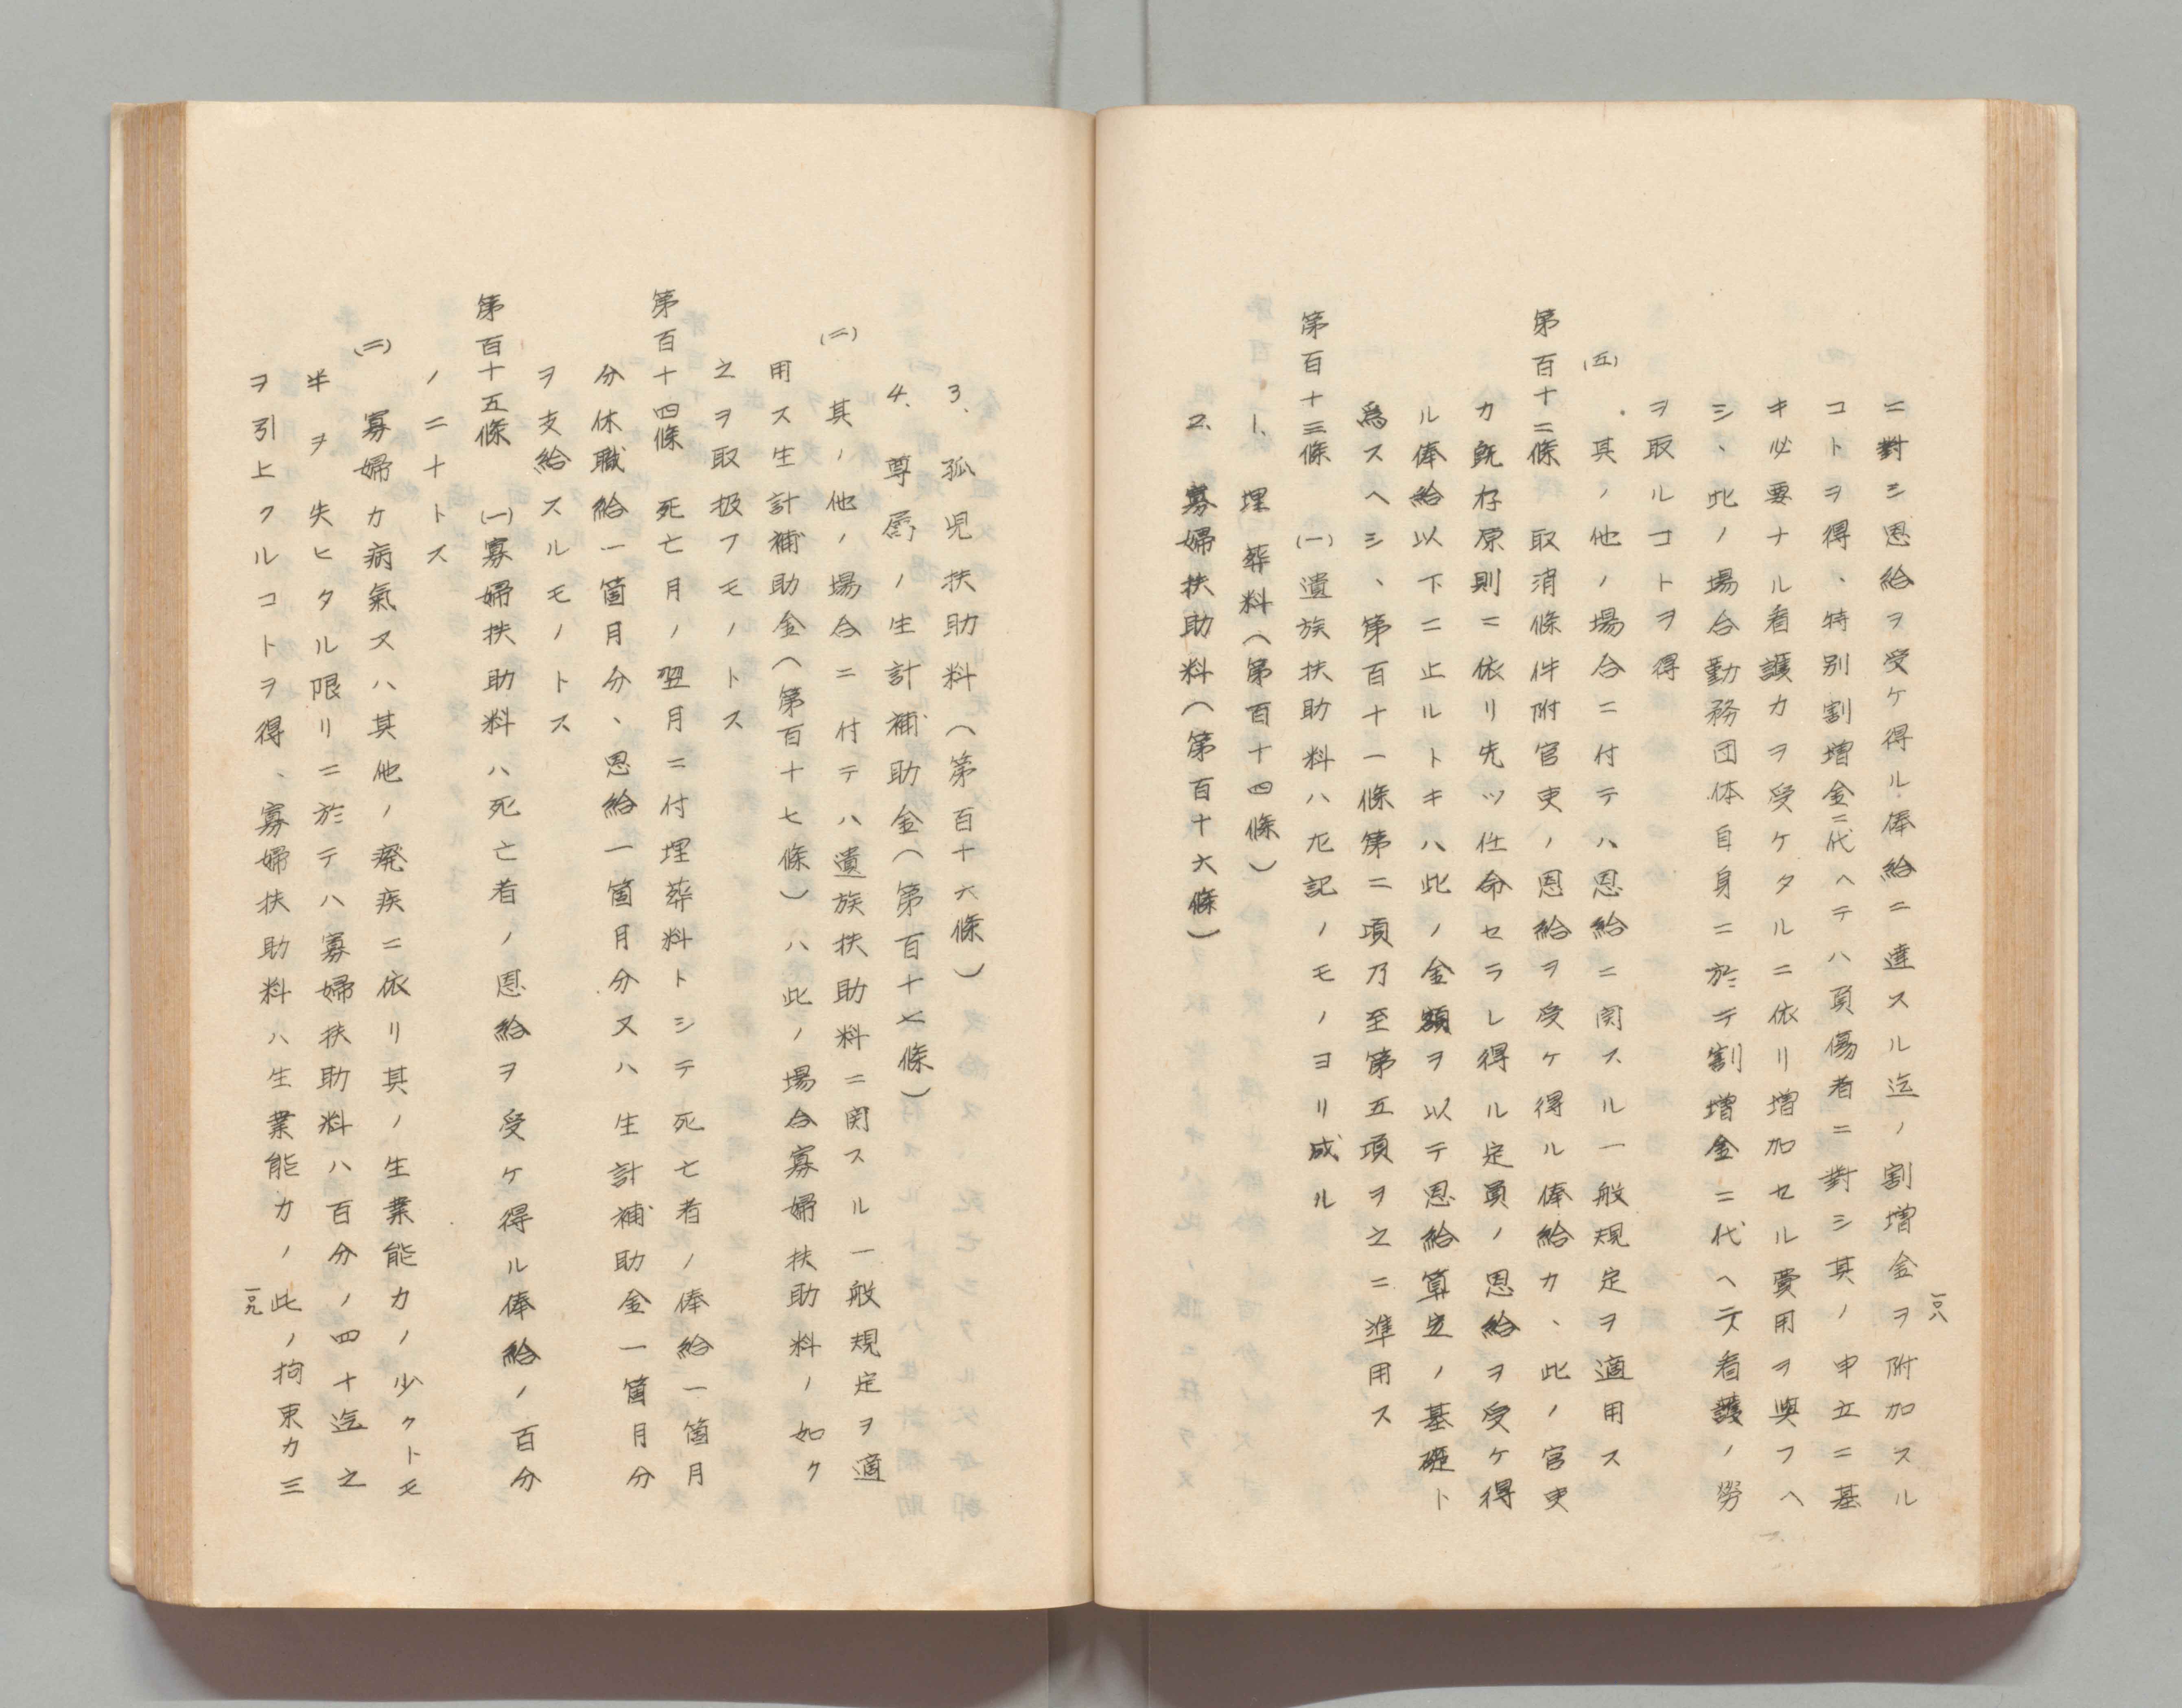 ニ對シ恩給ヲ受ケ得ル俸給ニ達スル迄ノ割増金ヲ附加スル
コトヲ得、特別割増金ニ代ヘテハ負傷者ニ對シ其ノ申立ニ基
キ必要ナル看護カヲ受ケタルニ依リ増加セル費用ヲ與フヘ
シ、此ノ場合勤務団体自身ニ於テ割増金ニ代ヘテ看護ノ労
ヲ取ルコトヲ得
(五) 其ノ他ノ場合ニ付テハ恩給ニ関スル一般規定ヲ適用ス
第百十二條 取消條件附官吏ノ恩給ヲ受ケ得ル俸給カ、此ノ官吏
カ既存原則ニ依リ先ツ任命セラレ得ル定員ノ恩給ヲ受ケ得
ル俸給以下ニ止ルトキハ此ノ金額ヲ以テ恩給算定ノ基礎ト
爲スヘシ、第百十一條第二項乃至第五項ヲ之ニ準用ス
第百十三條 (一)遺族扶助料ハ左記ノモノヨリ成ル
1、埋葬料(第百十四條)
2、寡婦扶助料(第百十六條)
一〇八
3、孤児扶助料(第百十六條)
4、尊属ノ生計補助金(第百十七條)
(二) 其ノ他ノ場合ニ付テハ遺族扶助料ニ関スル一般規定ヲ適
用ス生計補助金(第百十七條)ハ此ノ場合寡婦扶助料ノ如ク
之ヲ取扱フモノトス
第百十四條 死亡月ノ翌月ニ付埋葬料トシテ死亡者ノ俸給一箇月
分休職給一箇月分、恩給一箇月分又ハ生計補助金一箇月分
ヲ支給スルモノトス
第百十五條 (一)寡婦扶助料ハ死亡者ノ恩給ヲ受ケ得ル俸給ノ百分
ノ二十トス
(二) 寡婦カ病氣又ハ其他ノ癈疾ニ依リ其ノ生業能力ノ少クトモ
半ヲ失ヒタル限リニ於テハ寡婦扶助料ハ百分ノ四十迄之
ヲ引上クルコトヲ得、寡婦扶助料ハ生業能力ノ此ノ拘束カ三
一〇九